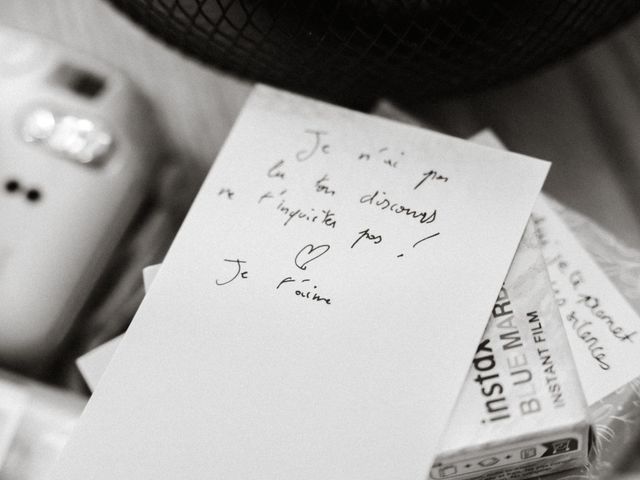 Je n'ai pas
lu ton discours
ne t'inquiètes pas !
♡
Je t'aime
je te promet
silences
instax
BLUE MARB
INSTANT FILM